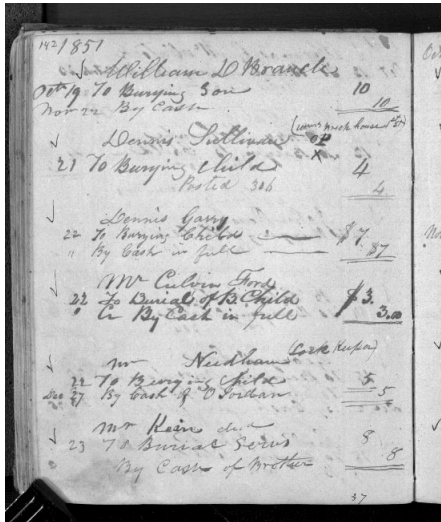 142 1851
William D Branch
Octr 19 To Burying Son 10
Nov 22 By Cash 10
Dennis Sullivan
21 To Burying child 4
Posted 306 4
Dennis Garry
22 To Burying Child $7
" By Cash in full $7
Mr Culvin Ford
22 To Burial of B Child $3.
Cr By Cash in full 3.00
Mr Needham (Lock Keeper)
22 To Burying child 5
Dec 27 By Cash 5
Mr Kein
23 To Burial Servs 8
By Cash of Brother 8
37